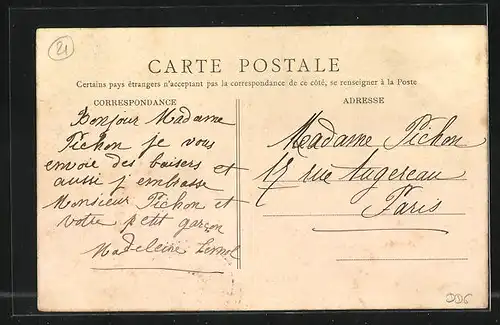 21
CARTE POSTALE
Certains pays étrangers n'acceptant pas la correspondance de ce côté, se renseigner à la Poste
CORRESPONDANCE
Bonjour Madame
Pichon je vous
envoie des baisers et
aussi j'embrasse
Monsieur Pichon et
votre petit garçon
Madeleine
ADRESSE
Madame Pichon
17 rue Augereau
Paris